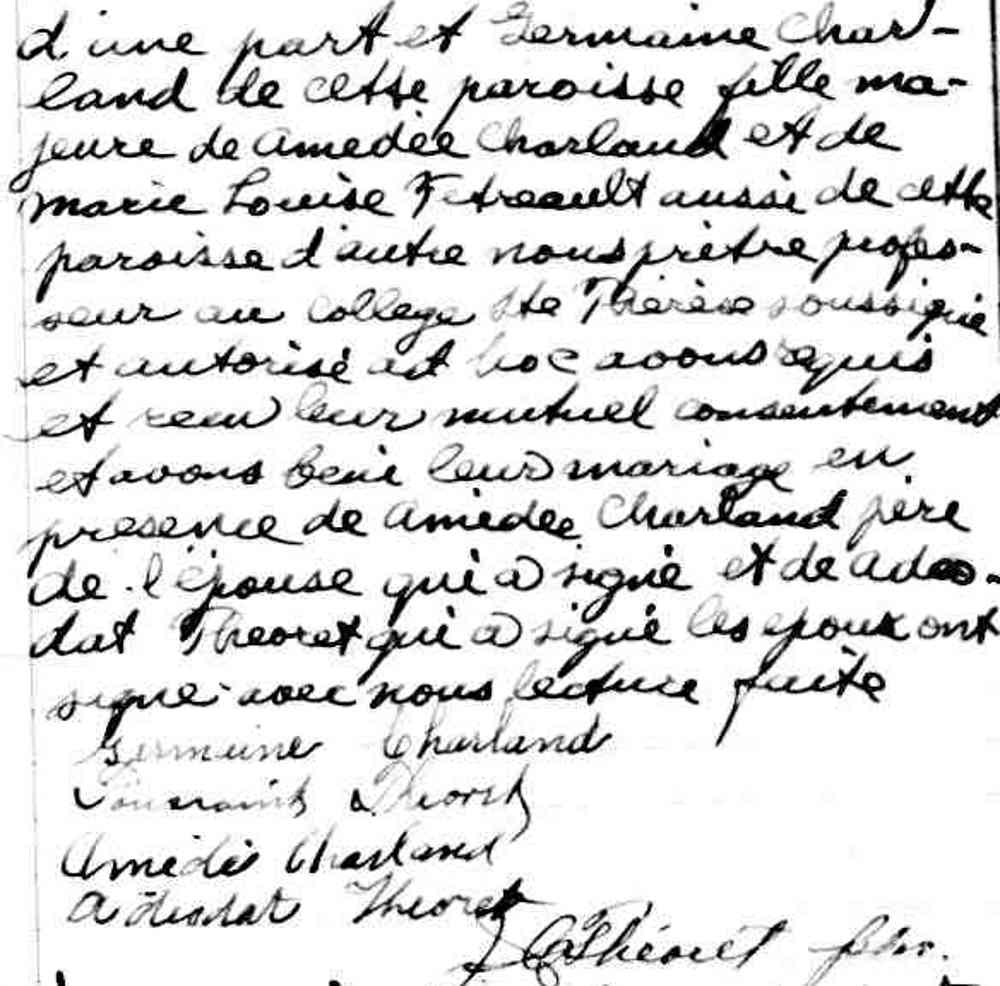 d'une part et Germaine Char-
land de cette paroisse fille ma-
jeure de Amedée Charland et de
Marie Louise Tetreault aussi de cette
paroisse d'autre nous prêtre profes-
seur au College Ste Thérèse soussigné
et autorisé ad hoc avons requis
et recu leur mutuel consentement
et avons beni leur mariage en
presence de Amedee Charland père
de l'épouse qui a signé et de Adéo-
dat Theoret qui a signé les epoux ont
signe avec nous lecture faite
Germaine Charland
Toussaint Theoret
Amédée Charland
Adeodat Theoret
Théorêt ptre.